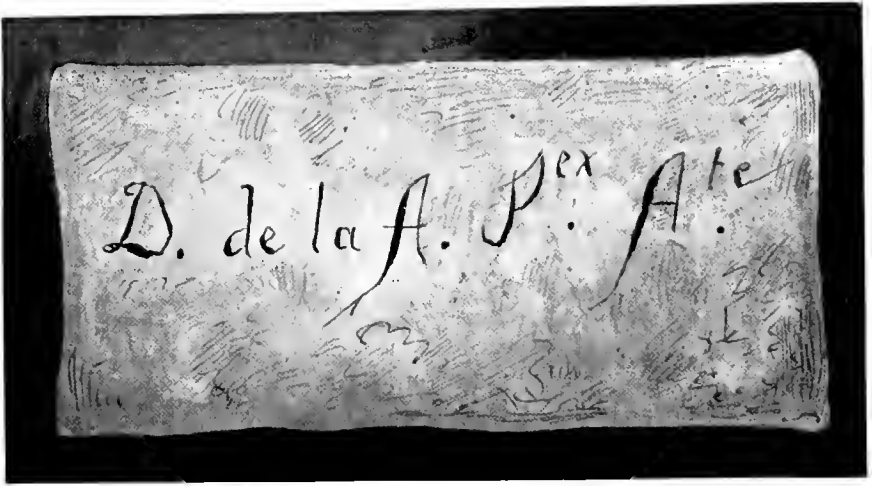 D. de la A. P.ex A.te